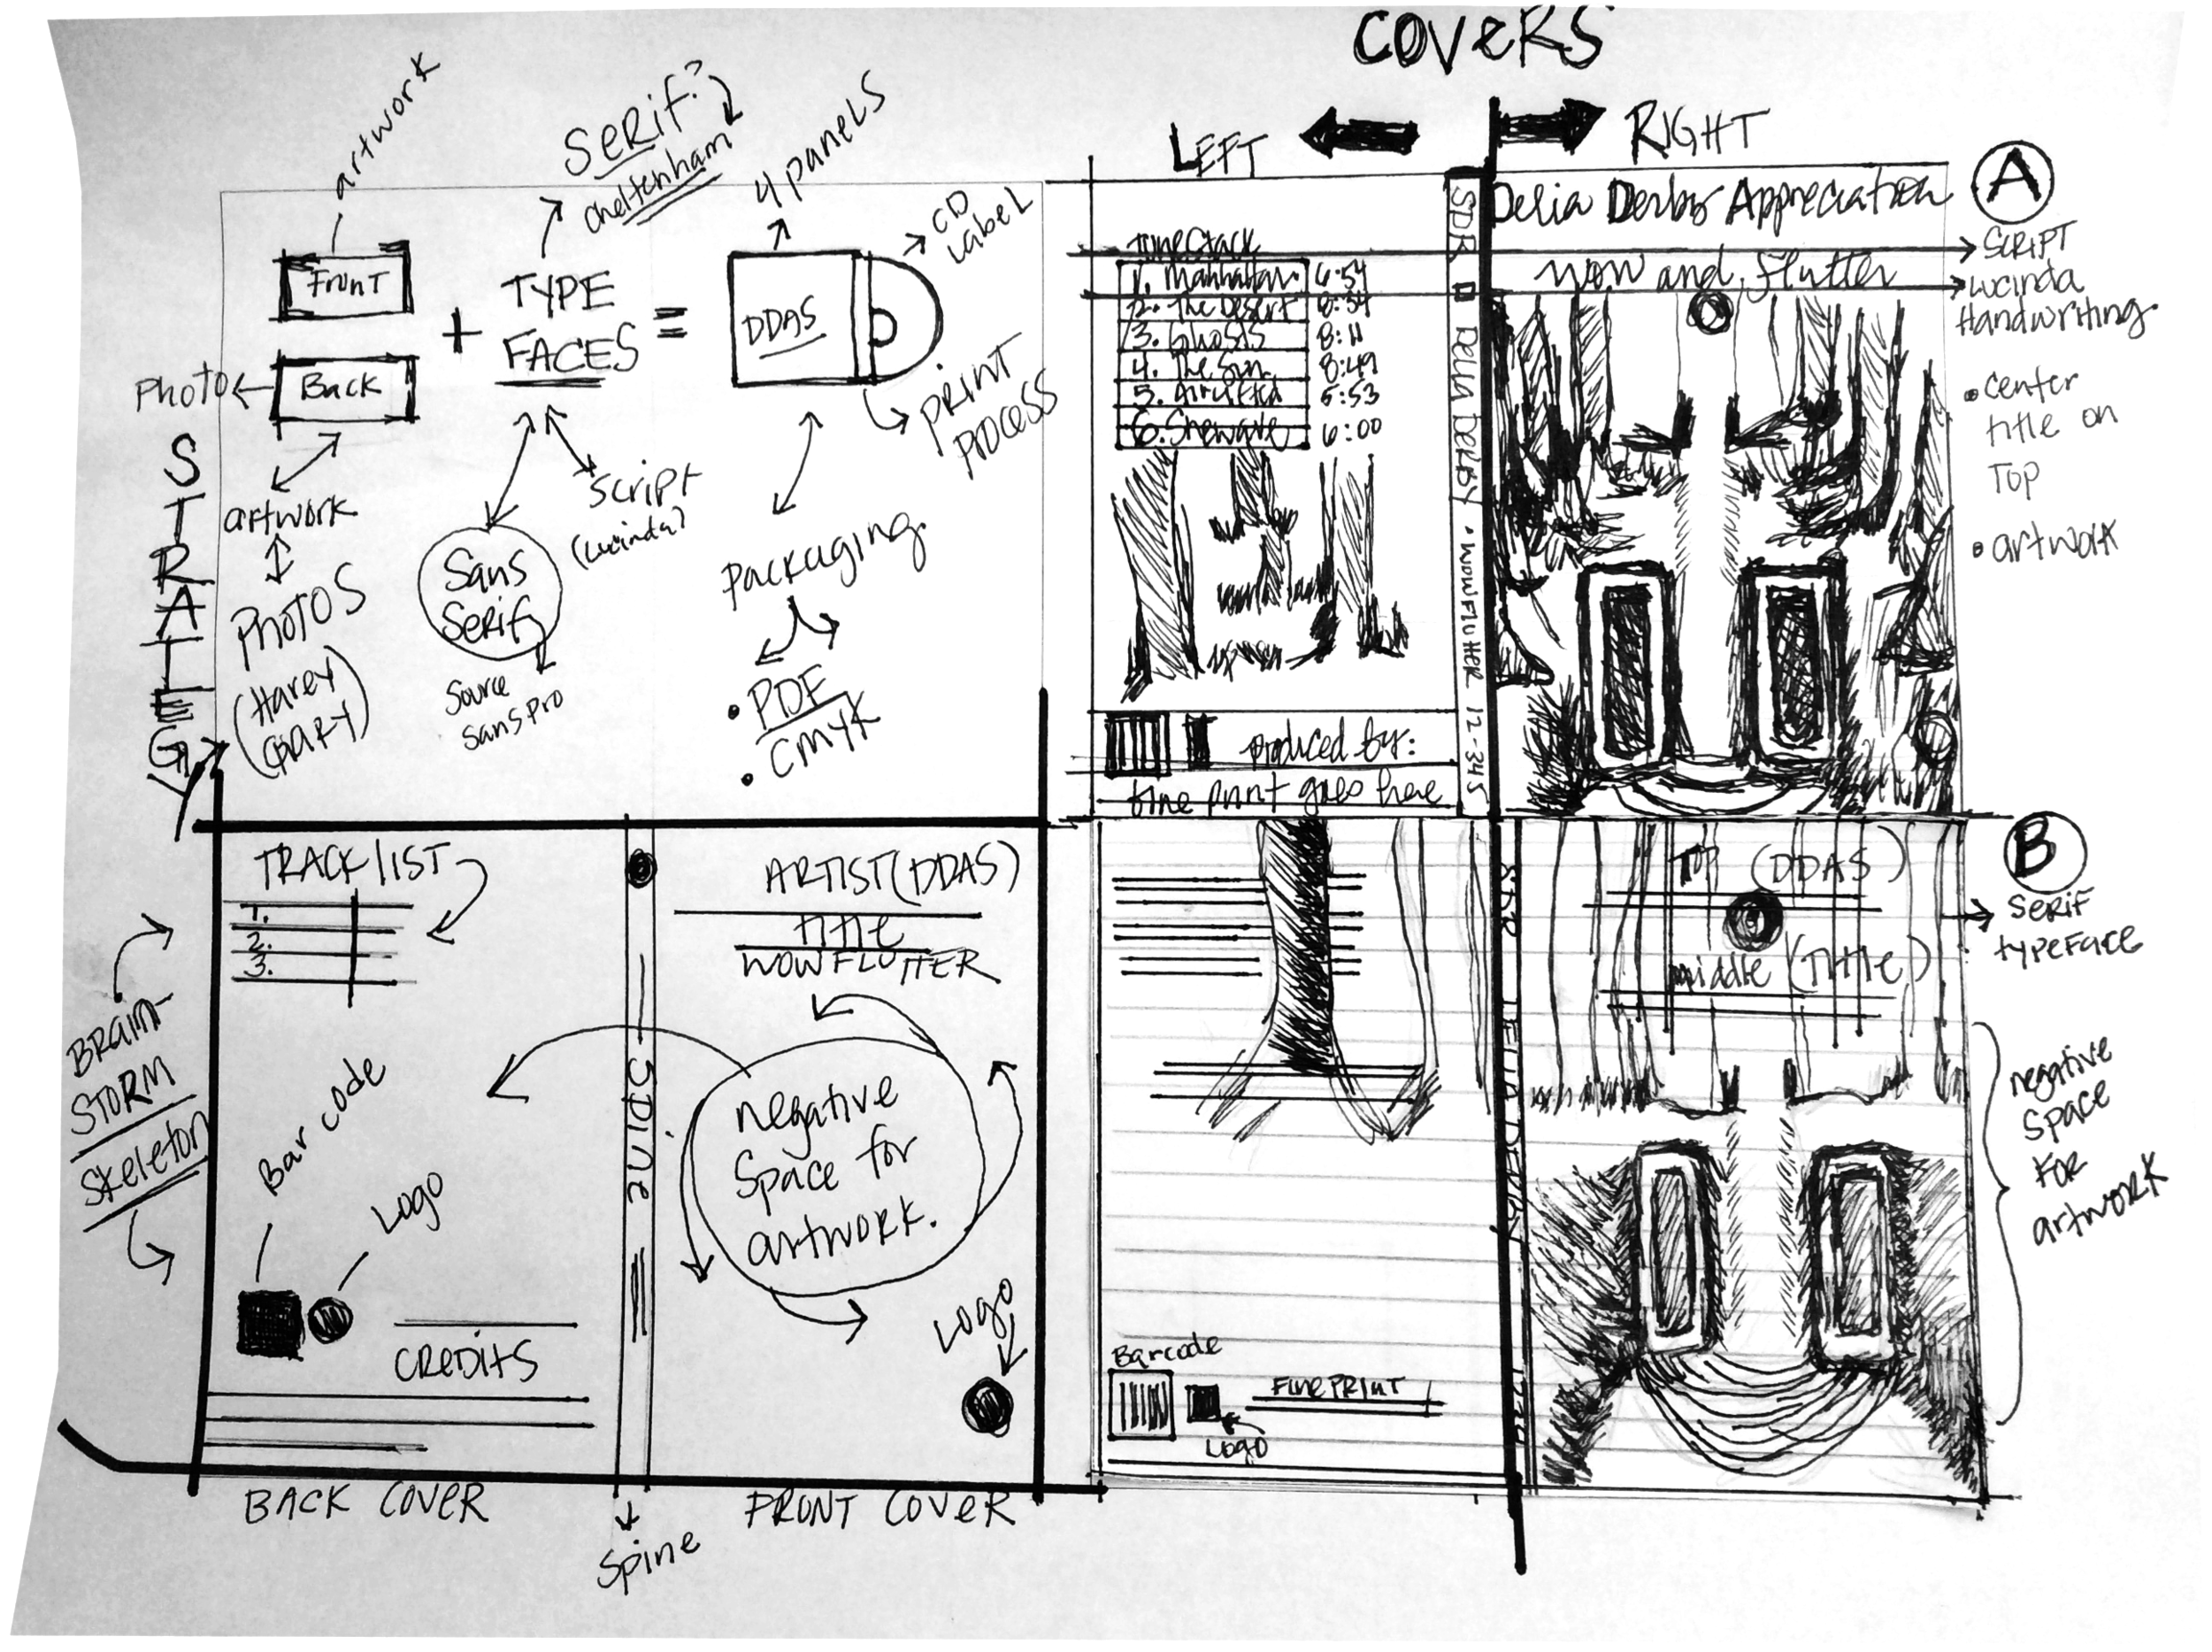 COVERS
LEFT
RIGHT
STRATEGY
artwork
FRONT
Photo
Back
artwork
PHOTOS
(Harey
GARY)
+
TYPE
FACES
=
Serif?
Cheltenham
Sans
Serif
Source
Sans Pro
Script
(Lucinda?)
4 panels
DDAS
CD
Label
PRINT
PROCESS
Packaging
• PDF
• CMYK
BRAIN-
STORM
Skeleton
TRACKLIST
1.
2.
3.
Bar code
Logo
CREDITS
BACK COVER
SPINE
Spine
ARTIST (DDAS)
TITLE
WOWFLUTTER
negative
Space for
artwork.
Logo
FRONT COVER
1. Manhattan 6:54
2. The Desert 8:34
3. Ghosts 8:11
4. The Sun 8:49
5. 5:53
6. Shewave 6:00
produced by:
fine print goes here
SDR DELIA DERBY • WOWFLUTTER 12-345
Delia Derby Appreciation
wow and flutter
A
SCRIPT
Lucinda
Handwriting.
• center
title on
TOP
• artwork
Barcode
LOGO
FINE PRINT
SDR DELIA DERBY 1234
TOP (DDAS)
middle (Title)
B
Serif
typeFace
negative
space
for
artwork